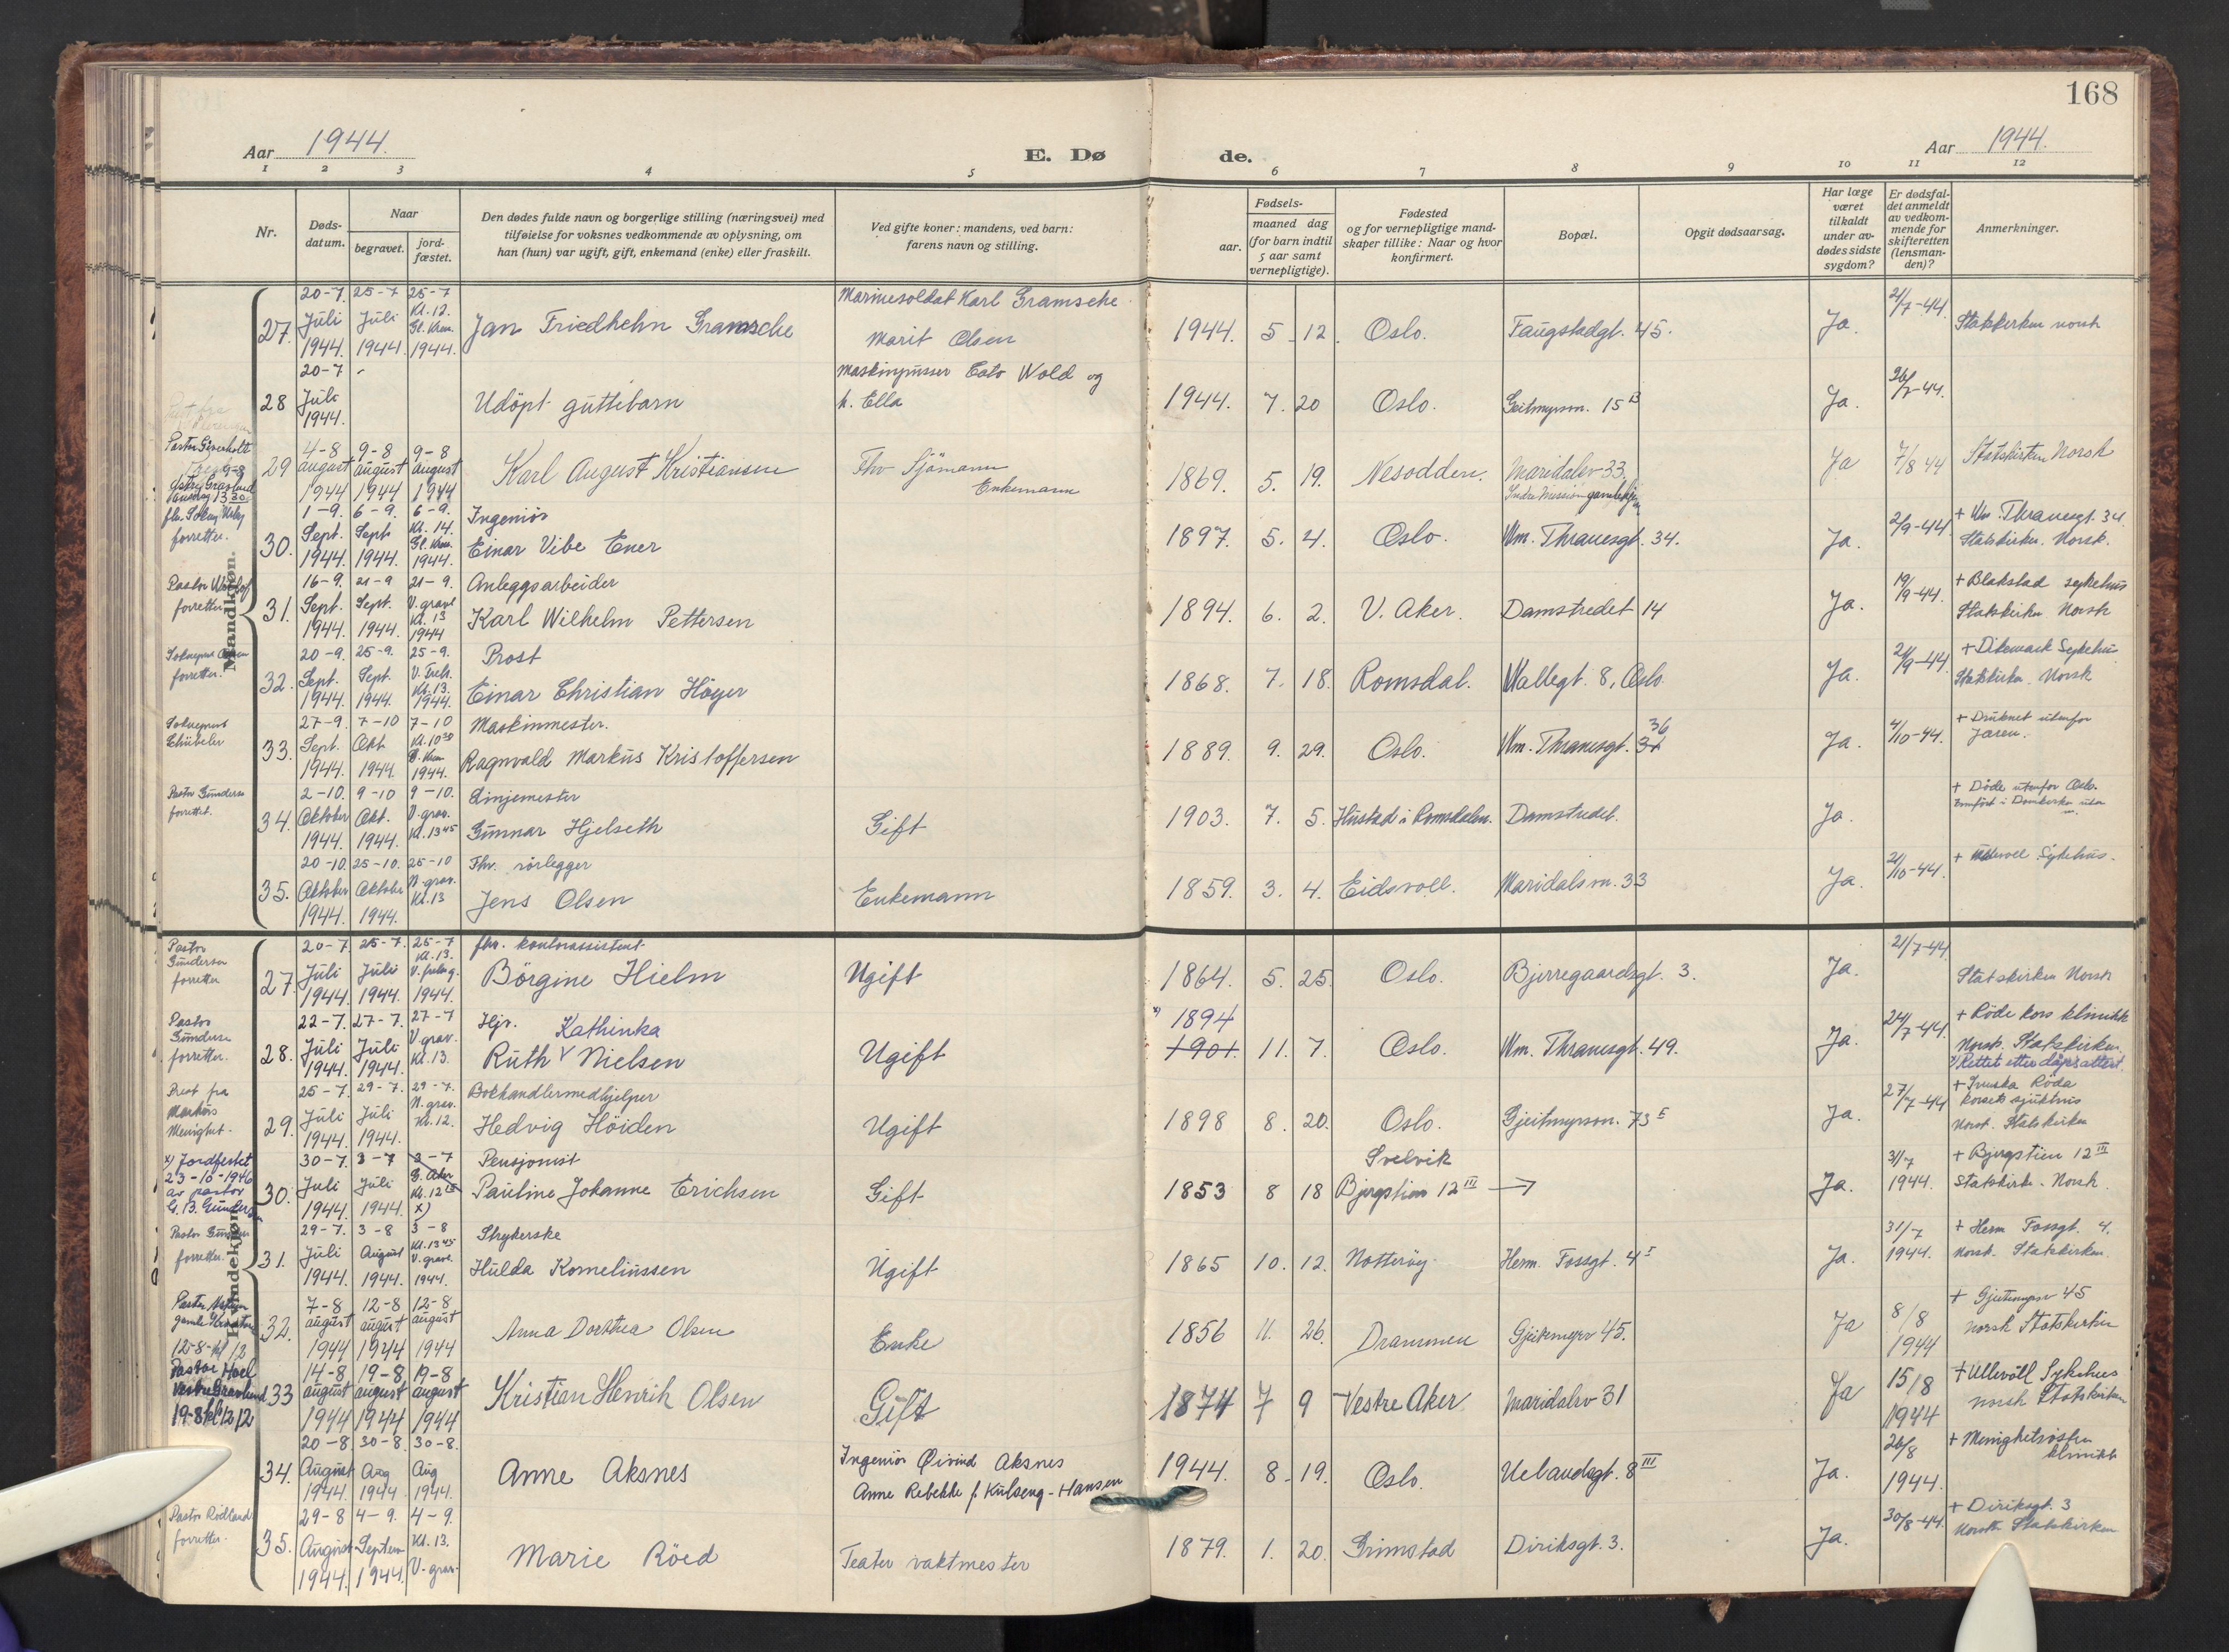 168
Aar 1944.
E. Dø
de.
Aar 1944.
1 2 3 4 5 6 7 8 9 10 11 12
Nr.
Døds-datum.
Naar
begravet.
jord-fæstet.
Den dødes fulde navn og borgerlige stilling (næringsvei) med
tilføielse for voksnes vedkommende av oplysning, om
han (hun) var ugift, gift, enkemand (enke) eller fraskilt.
Ved gifte koner: mandens, ved barn:
farens navn og stilling.
Fødsels-
aar.
maaned dag
(for barn indtil
5 aar samt
vernepligtige).
Fødested
og for vernepligtige mand-
skaper tillike: Naar og hvor
konfirmert.
Bopæl.
Opgit dødsaarsag.
Har læge
været
tilkaldt
under av-
dødes sidste
sygdom?
Er dødsfal-
det anmeldt
av vedkom-
mende for
skifteretten
(lensman-
den)?
Anmerkninger.
Mandkjøn.
27. 20-7. Juli 1944. 25-7 Juli 1944. 25-7 Kl. 12. Gl. Krem. 1944. Jan Friedhelm Gramsche
Marinesoldat Karl Gramsche
Marit Olsen
1944. 5 - 12. Oslo. Faugstadgt. 45. Ja. 21/7-44. Statskirken norsk
28 20-7 Juli 1944. Udöpt guttebarn
Maskinpusser Wold og
h. Ella
1944. 7. 20 Oslo. Geitmyrsvn. 15 B Ja. 26/7-44.
29 4-8 august 1944 9-8 august 1944 9-8 august 1944 Karl August Kristiansen
Fhv Sjömann
Enkemann
1869. 5. 19. Nesodden. Maridalsv 33. Ja 7/8 44 Statskirken Norsk
forretter.
30. 1-9. Sept. 1944. 6-9. Sept 1944. 6-9. Kl. 14. Gl. Krem. 1944. Ingeniör
Einar Vibe Ener
1897. 5. 4. Oslo. Wm. Thranesgt. 34. Ja. 2/9-44. + Wm. Thranesgt. 34.
Statskirken. Norsk.
Pastor
forretter
31. 16-9. Sept. 1944. 21-9 Sept. 1944. 21-9. V. gravl. Kl. 13 1944 Anleggsarbeider
Karl Wilhelm Pettersen
1894. 6. 2. V. Aker. Damstredet 14 Ja. 19/9-44. + Blakstad sykehus
Statskirken Norsk
forretter.
32. 20-9. Sept. 1944. 25-9. Sept. 1944. 25-9. Kl. 13. 1944. Prost
Einar Christian Höyer
1868. 7. 18. Romsdal. Wallegt. 8, Oslo Ja. 21/9-44. + Dikemark Sykehus
Statskirken. Norsk
Sokneprest
Schübeler
33. 27-9. Sept. 1944. 7-10 Okt. 1944. 7-10 Kl. 10 30 1944. Maskinmester.
Ragnvald Markus Kristoffersen
1889. 9. 29. Oslo. Wm. Thranesgt. 34 36 Ja. 4/10-44. + Druknet utenfor
Jæren.
Pastor Gundersen
forrettet.
34. 2-10. Oktober 1944. 9-10 Okt. 1944. 9-10. V. grav. Kl. 13 45 Linjemester
Gunnar Hjelseth
Gift
1903. 7. 5. Hustad i Romsdalen. Damstredet. Ja. + Döde utenfor Oslo.
35. 20-10. Oktober 1944. 25-10. Oktober 1944. 25-10 N. grav. Kl. 13 Fhv. rörlegger
Jens Olsen
Enkemann
1859. 3. 4. Eidsvoll. Maridalsvn. 33 Ja. 21/10-44. + Ullevoll Sykehus.
Kvindekjøn.
Pastor
Gundersen
forretter
27. 20-7 Juli 1944. 25-7. Juli 1944. 25-7 Kl. 13. 1944. fhv. kontorassistent
Börgine Hielm
Ugift
1864. 5. 25. Oslo. Bjerregaardsgt. 3. Ja. 21/7-44. Statskirken Norsk
Pastor
Gundersen
forretter.
28. 22-7. Juli 1944. 27-7. Juli 1944. 27-7 V. grav. Kl. 13. Hjv. Kathinka
Ruth Nielsen
Ugift
x) 1894 1901. 11. 7. Oslo. Wm. Thranesgt. 49. Ja. 24/7-44. + Röde kors klinikk
Norsk. Statskirken.
x) Rettet etter dåpsattest.
Prest fra
Markus
Menighet.
29. 25-7. Juli 1944. 29-7. Juli 1944. 29-7. N. grav. Kl. 12. Bokhandlermedhjelper
Hedvig Höiden
Ugift
1898 8. 20. Oslo. Gjeitmyrsvn. 73 E Ja. 27/7-44 + Svenska Röda
korsets sjukhus
Norsk. Statskirken
x) Jordfestet
23-10-1946
av pastor
G. B. Gundersen
30. 30-7. Juli 1944. 3-7 Juli 1944. 3-7 Kl. 12 x) Pensjonist
Pauline Johanne Erichsen
Gift
1853 8 18 Svelvik Bjergstien 12 III → Ja. 31/7 1944. + Bjergstien 12 III
Statskirk. Norsk.
Pastor Gundersen
forretter.
31. 29-7. Juli 1944. 3-8 August 1944. 3-8 Kl. 13 45 V. gravl. 1944. Strykerske
Hulda Korneliussen
Ugift
1865 10. 12. Nötteröy. Herm. Fossgt. 4 I Ja. 31/7 1944. + Herm Fossgt. 4.
Norsk. Statskirken.
12-8-kl 12
32. 7-8 august 1944 12-8 august 1944 12-8 august 1944 Anna Dorthea Olsen
Enke
1856 11. 26. Drammen Gjeitmyrsv 45. Ja 8/8 1944 + Gjeitmyrsv 45
norsk Statskirken
Pastor Hoel
Vestre Gravlund
19-8 kl 12
33 14-8 august 1944 19-8 august 1944 19-8 august 1944 Kristian Henrik Olsen
Gift
1874 7 9 Vestre Aker Maridalsv 31 Ja 15/8 1944 + Ullevöll Sykehus
norsk Statskirken
34. 20-8. August 1944. 30-8. Aug 1944 30-8. Aug 1944. Anne Aksnes
Ingeniör Öivind Aksnes
Anne Rebekke f. Kulseng-Hansen
1944. 8 - 19. Oslo. Uelandsgt. 8 III Ja. 26/8 1944. + Menighetssösten
klinikk
Pastor Rödland
forretter.
35. 29-8 August 1944. 4-9. Septem 1944. 4-9. Kl. 13. V. grav. Marie Röed
Teater vaktmester
1879. 1. 20. Grimstad Diriksgt. 3. Ja. 30/8-44. + Diriksgt. 3
Norsk Statskirken